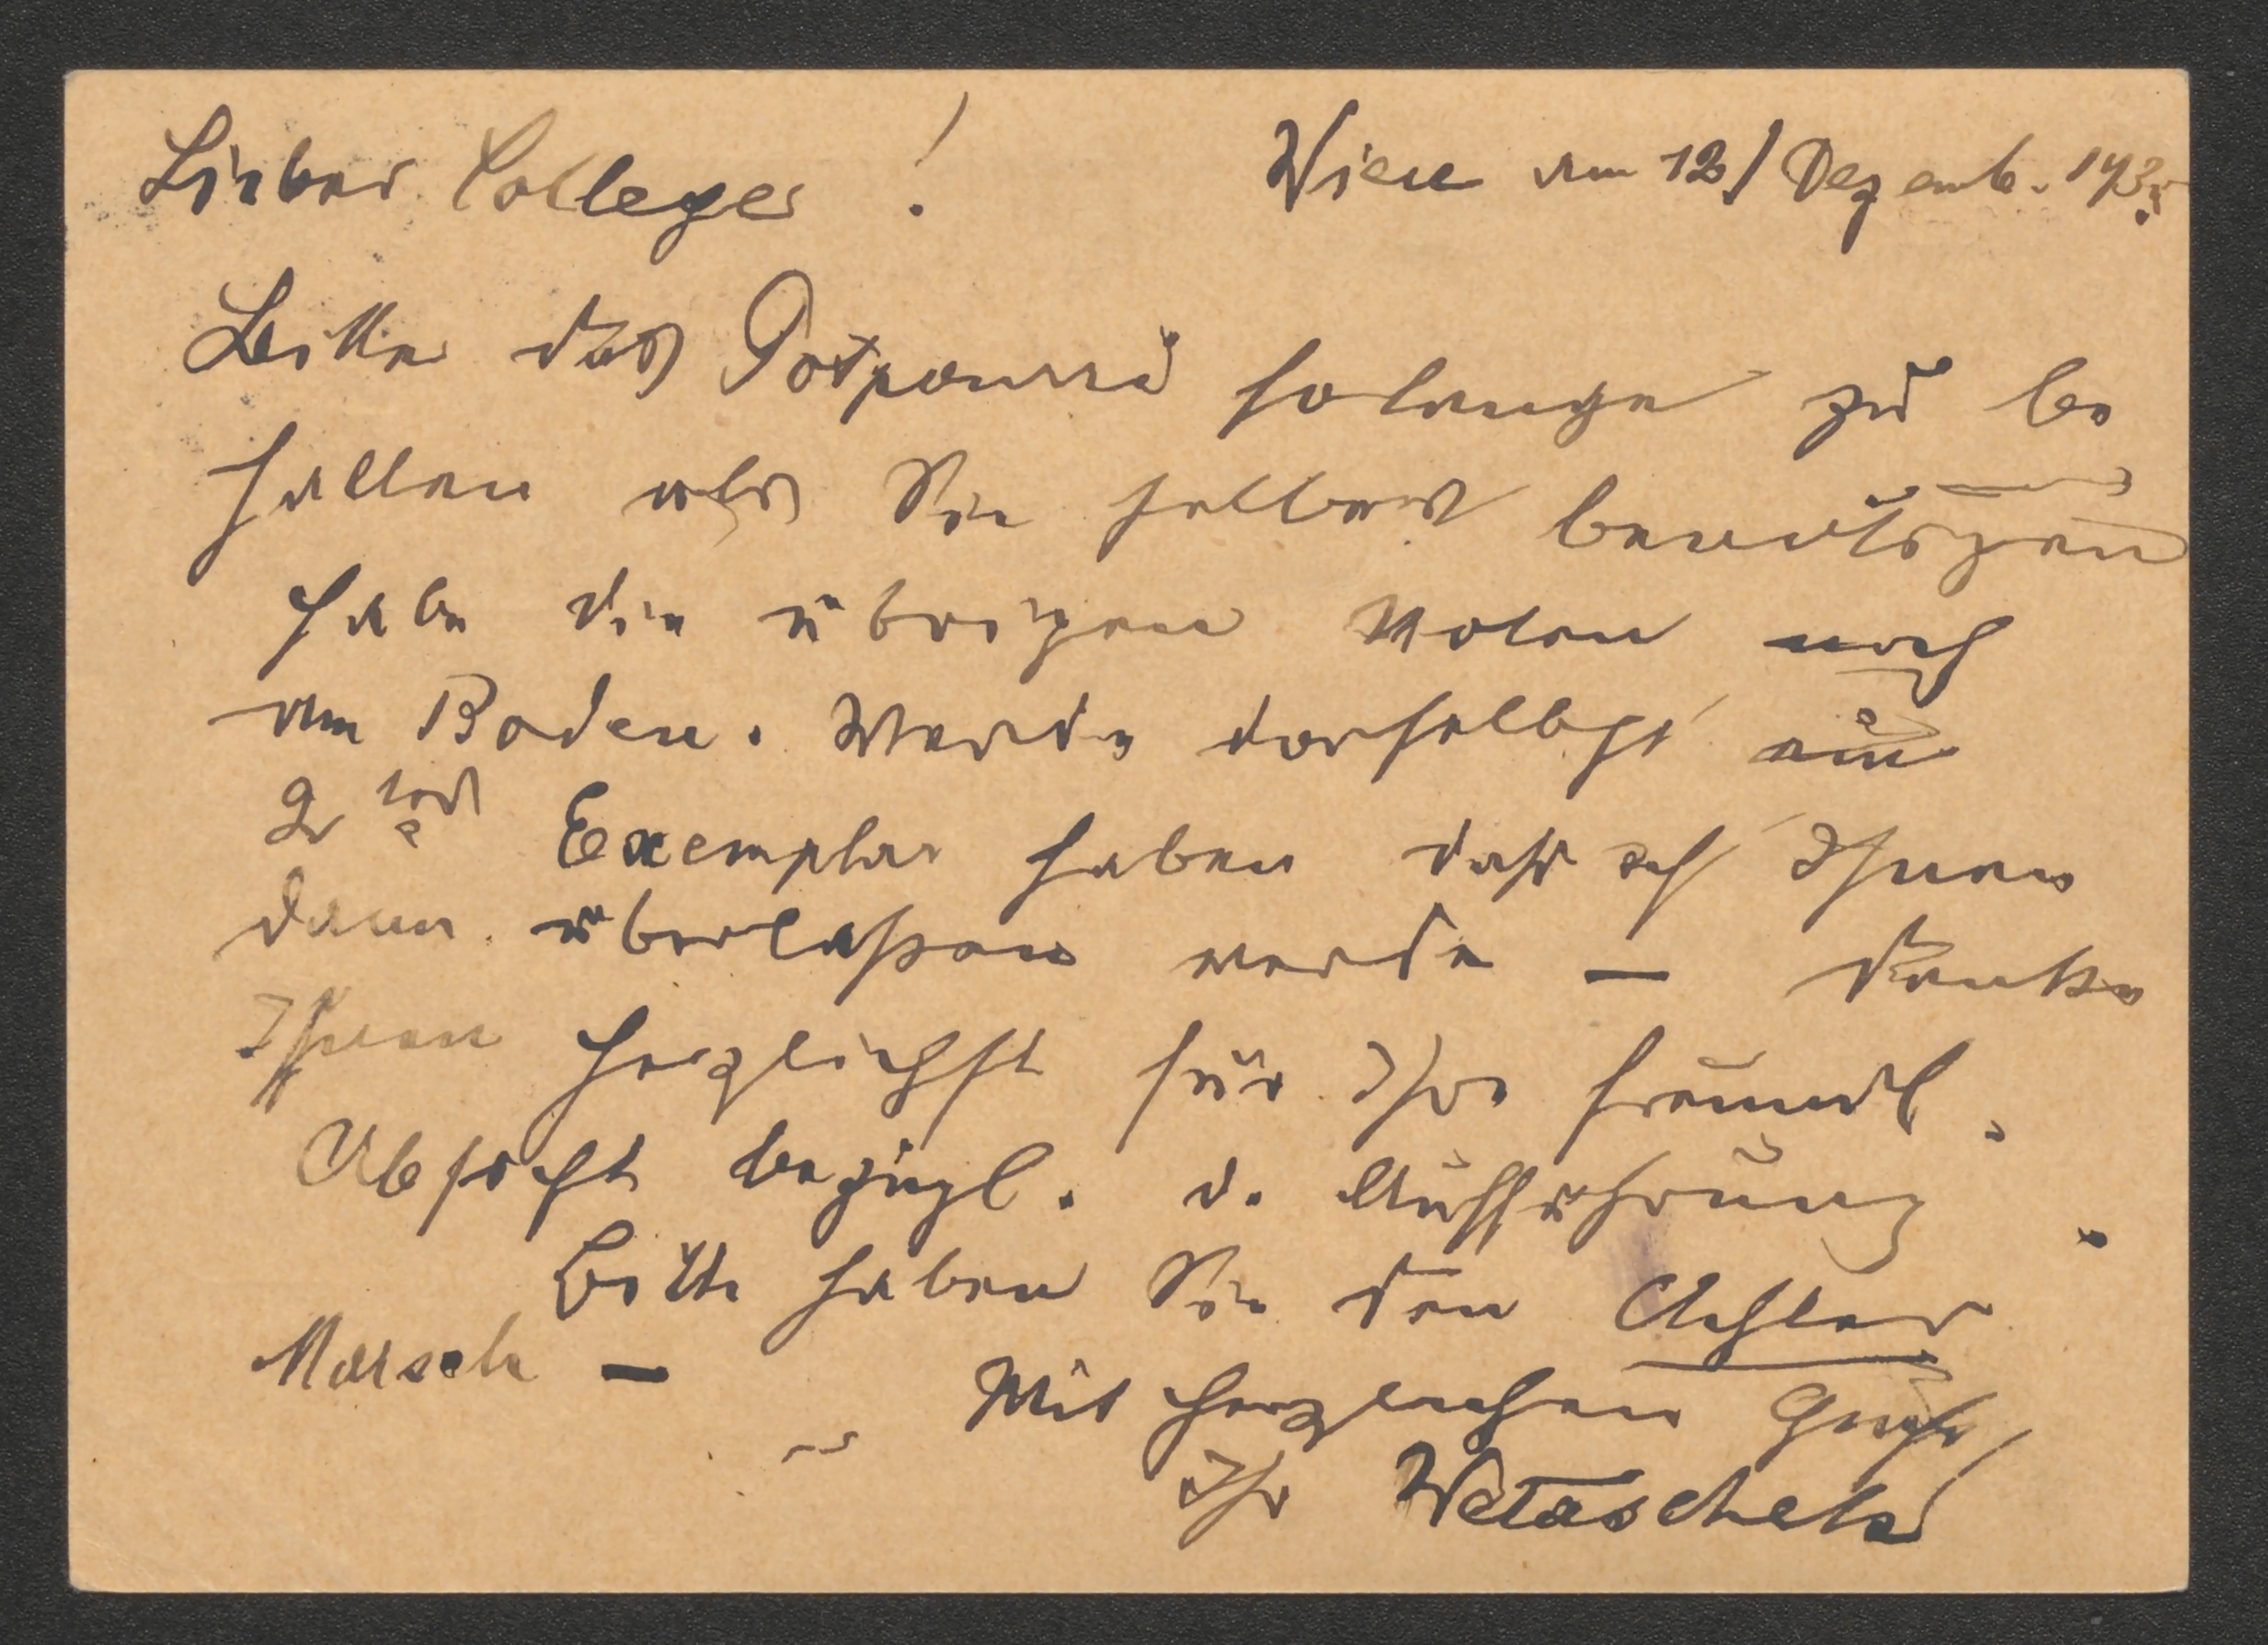 Lieber Collega! Wien am 12/ Dezemb. 193
Bitte das Potpourri solange zu be
halten als Sie selbes benötigen
habe die übrigen Noten noch
am Boden. Werde dorselbst ein
2tes Exemplar haben daß ich Ihnen
dann überlaßen werde — danke
Ihnen herzlichst für Ihre freundl.
Absicht bezügl. d. Aufführung.
Bitte haben Sie den Achter
Marsch —
Mit herzlichen Gruße
Ihr Wetaschek